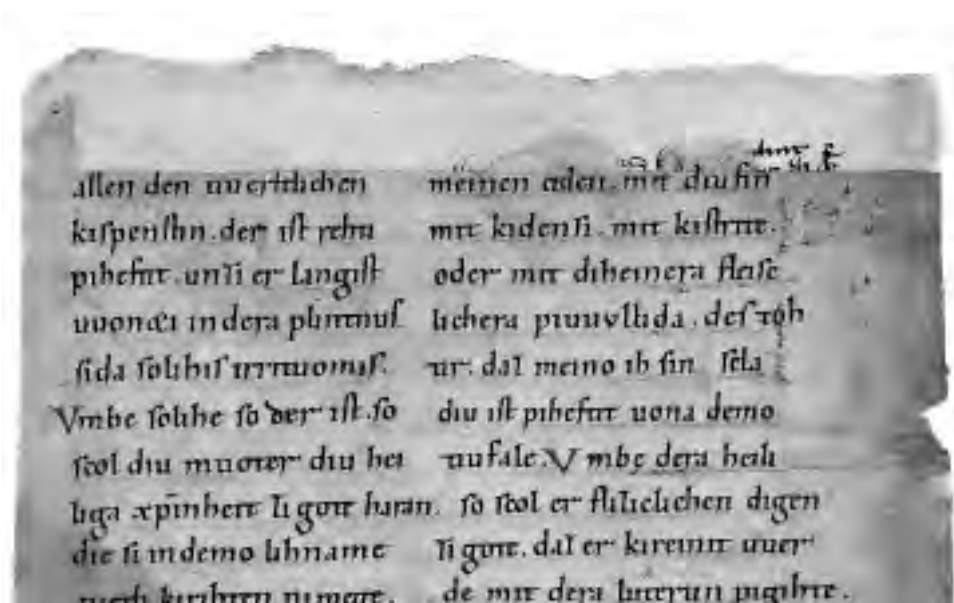 allen den uuertlichen
kispensten. der ist rehto
piheftit. unzi er langist
uuonet in dera plintnus
sida solihis irrituomis.
Vmbe solihe so der ist. so
scol diu muoter diu hei
liga xpinheit zi gote haran.
die si in demo lihname
kirihten nimege.
meinen aden. mit diu sin
mit kidensi. mit kistrite.
oder mit diheinera fleisc
lichera piuuollida. des toh
tir. daz meino ih sin sela
diu ist piheftit uona demo
tiufale. Vmbe dera heili
so scol er flizliclichen digen
zi gote. daz er kireinit uuer
de mit dera luterun pigihte.